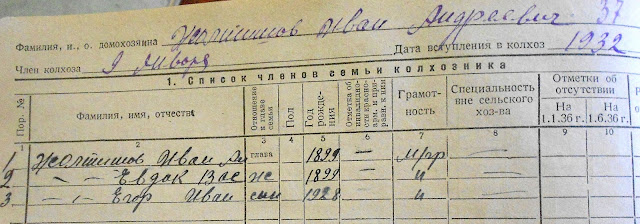 Фамилия, и., о. домохозяина Иван Андреевич 37
Член колхоза 9 января Дата вступления в колхоз 1932
1. Список членов семьи колхозника
Пор. №
Фамилия, имя, отчество
Отношение к главе семьи
Пол
Год рождения
Отметка об инвалидности
Грамотность
Специальность вне сельского хоз-ва
Отметки об отсутствии
На 1.1.36 г.
На 1.6.36 г.
1 2 3 4 5 6 7 8 9 10
1 Иван Ан глава 1899 — —
2 — " — Евдок Вас ж 1899 — " —
3 — " — Егор Иван сын 1928 — " —